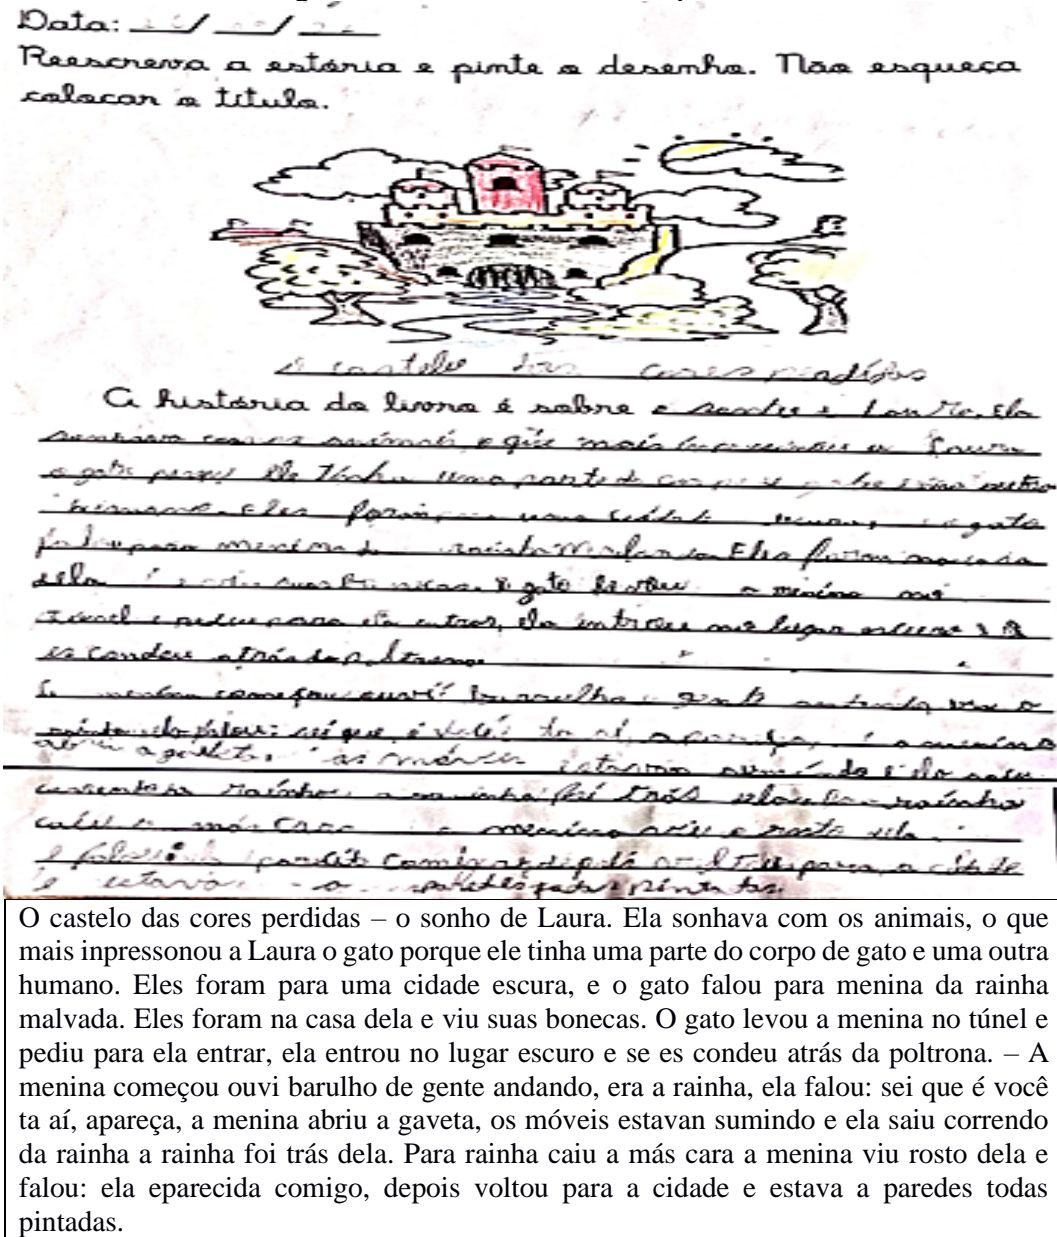 Data:
Reescreva a estória e pinte o desenho. Não esqueça
colocar o título.
o castelo das cores perdidas
A história do livro é sobre o sonho e Laura, Ela
sonhava com os animais, o que mais Laura
o gato ele tinha uma parte do corpo outra
humano. Eles foram uma cidade escura, o gato
falou para menina da rainha malvada Eles foram na casa
dela suas bonecas. O gato levou a menina no
túnel e pediu para ela entrar, ela entrou no lugar escuro e
es condeu atrás da poltrona.
A menina começou ouvi barulho gente andando, era a
rainha, ela falou: sei que é você ta aí, apareça, a menina
abriu a gaveta, os móveis estavan sumindo e ela saiu
correndo da rainha a rainha foi trás dela rainha
caiu a más cara a menina viu o rosto dela
e falou comigo depois voltou para a cidade
e estava paredes todas pintadas
O castelo das cores perdidas – o sonho de Laura. Ela sonhava com os animais, o que
mais inpressonou a Laura o gato porque ele tinha uma parte do corpo de gato e uma outra
humano. Eles foram para uma cidade escura, e o gato falou para menina da rainha
malvada. Eles foram na casa dela e viu suas bonecas. O gato levou a menina no túnel e
pediu para ela entrar, ela entrou no lugar escuro e se es condeu atrás da poltrona. – A
menina começou ouvi barulho de gente andando, era a rainha, ela falou: sei que é você
ta aí, apareça, a menina abriu a gaveta, os móveis estavan sumindo e ela saiu correndo
da rainha a rainha foi trás dela. Para rainha caiu a más cara a menina viu rosto dela e
falou: ela eparecida comigo, depois voltou para a cidade e estava a paredes todas
pintadas.